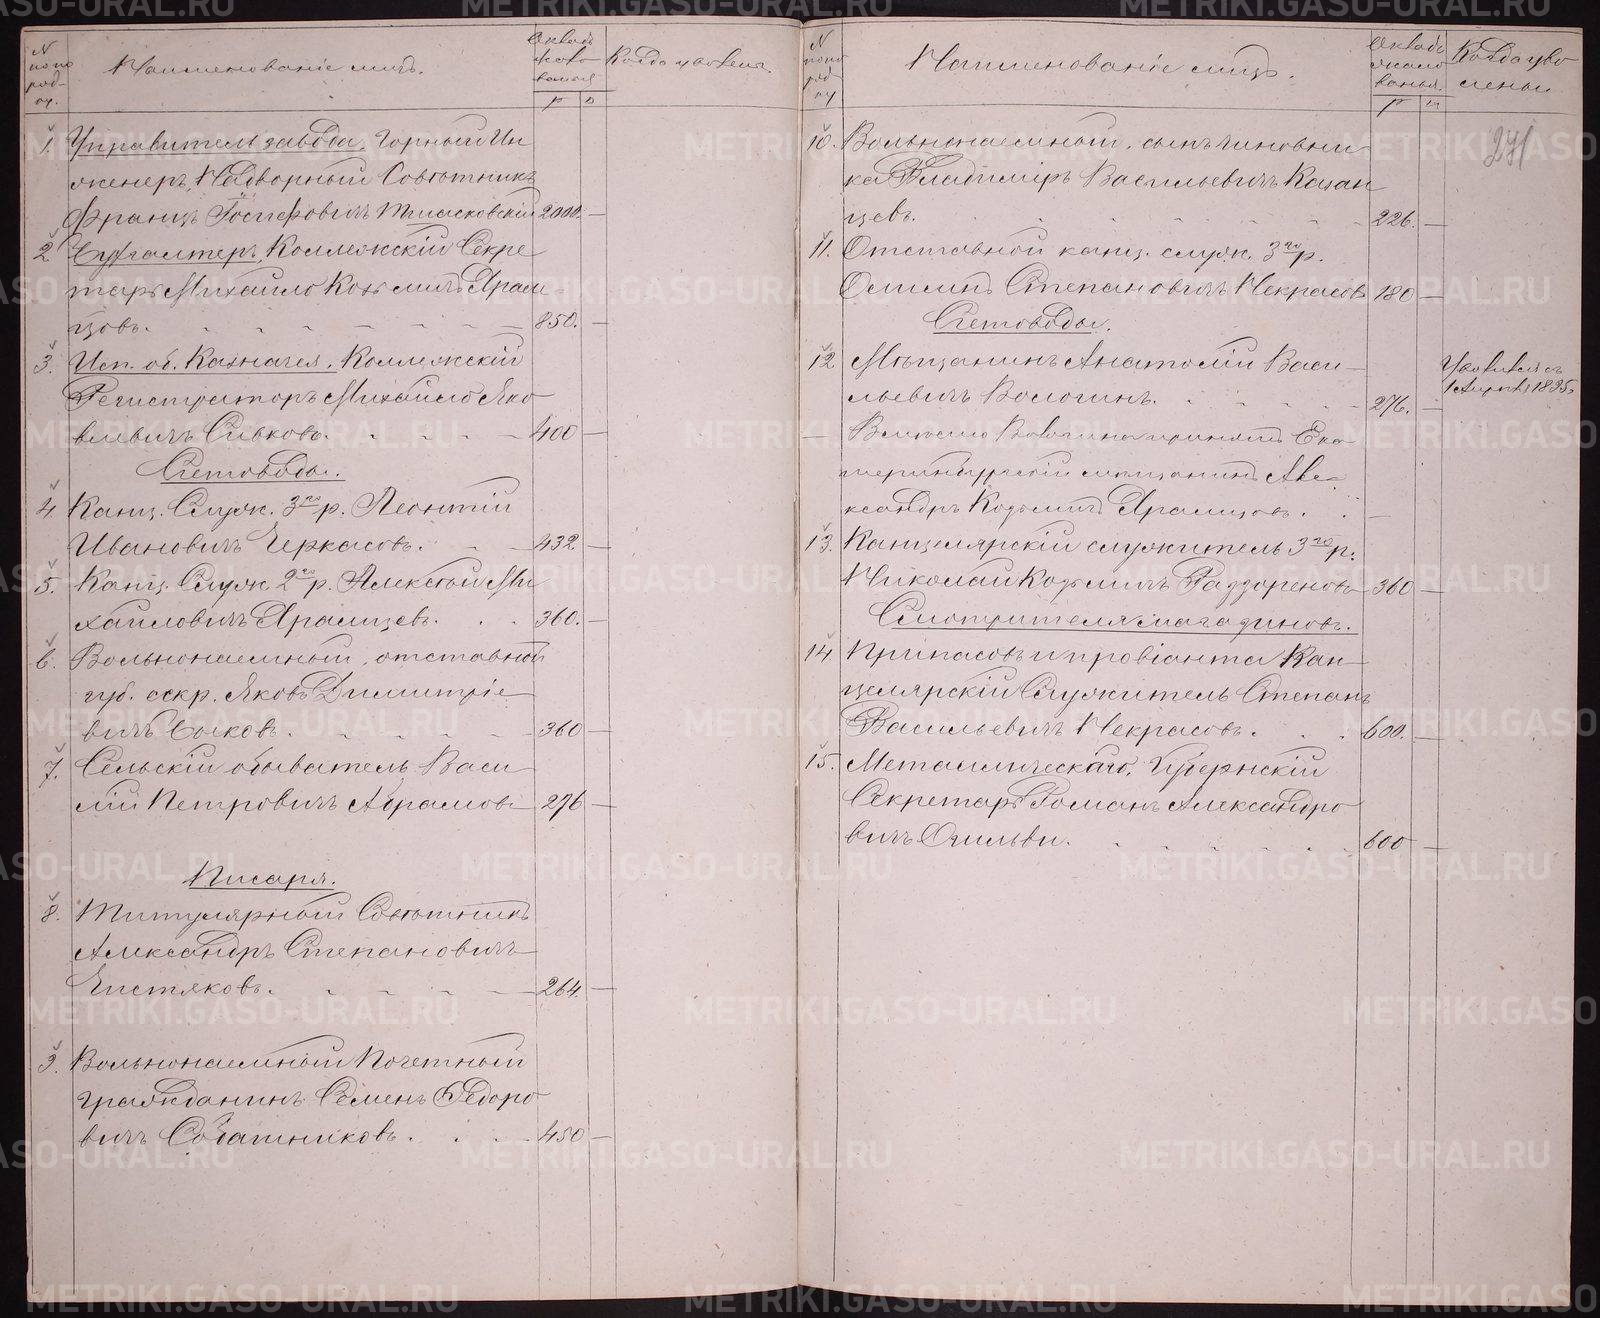 N по по ряд-ку.
Наименованіе лицъ.
Окладъ жалованья
р к
Когда уволенъ
1. Управитель завода, Горный Ин
женеръ, Надворный Совѣтникъ
Францъ Іосифовичъ 2000. —
2. Бухгалтеръ, Коллежскій Секре
тарь Михайло Козьмичъ Арами
цовъ. 850. —
3. Исп. об. Казначея, Коллежскій
Регистраторъ Михайло Яко
влевичъ Сивковъ. 400 —
Счетоводы.
4. Канц. Служ. 3го р. Леонтій
Ивановичъ Черкасовъ. 432 —
5. Канц. Служ. 2го р. Алексѣй Ми
хайловичъ Арамицевъ. 360. —
6. Вольнонаемный, отставной
губ. секр. Яковъ Димитріе
вичъ Быковъ. 360 —
7. Сельскій обыватель Васи
лій Петровичъ Абрамовъ 276 —
Писаря.
8. Титулярный Совѣтникъ
Александръ Степановичъ
Чистяковъ. 264. —
9. Вольнонаемный Почетный
гражданинъ Семенъ Федоро
вичъ 450 —
N по по ряд-ку
Наименованіе лицъ.
Окладъ жалованья.
р к
Когда уволены
271
10. Вольнонаемный, сынъ чиновни
ка Владиміръ Васильевичъ Казан
цевъ. 226. —
11. Отставной канц. служ. 3го р.
Степановичъ Некрасовъ 180 —
Счетоводы.
12 Мѣщанинъ Анатолій Васи-
льевичъ Вологинъ. 276. —
Уволился съ
1 Апрѣля 1885.
— Вмѣсто Вологина принятъ Ека
теринбургскій мѣщанинъ Але-
ксандръ Козьмичъ Арамицовъ. —
13. Канцелярскій служитель 3го р.
Николай Козьмичъ 360 —
Смотрителя магазиновъ.
14 Припасовъ и провіанта Кан-
целярскій Служитель Степанъ
Васильевичъ Некрасовъ. 600. —
15. Металлическаго, Губернскій
Секретарь Романъ Александро
вичъ Огильви. 600 —
METRIKI.GASO-URAL.RU